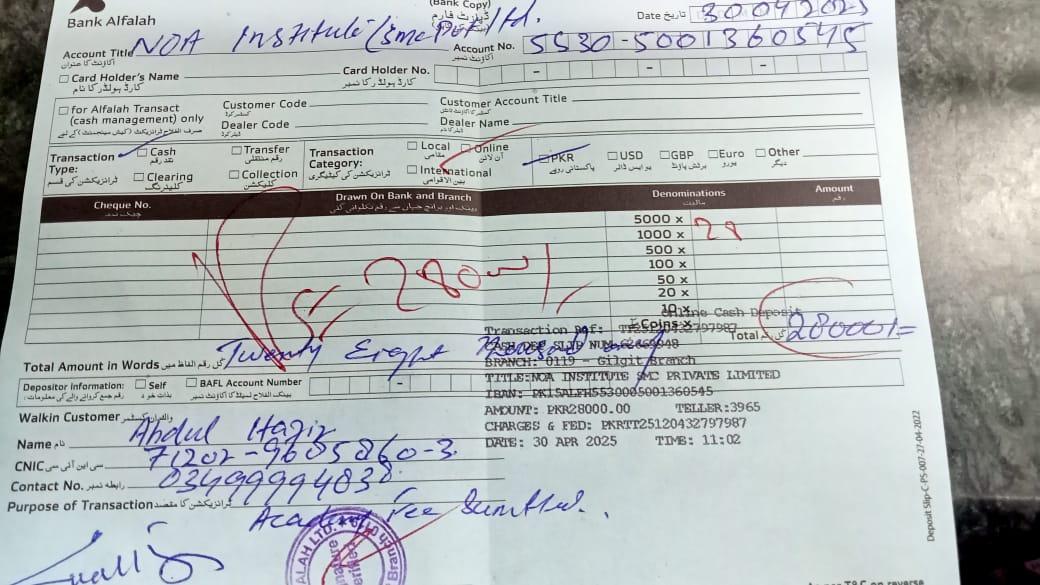 (Bank Copy)
Bank Alfalah
ڈپازٹ فارم
Date تاریخ 30042025
Account Title NOA Institute (smc Pvt) ltd.
اکاؤنٹ کا عنوان
Account No. 5530-5001360545
اکاؤنٹ نمبر
Card Holder's Name
کارڈ ہولڈر کا نام
Card Holder No.
کارڈ ہولڈر نمبر
for Alfalah Transact
(cash management) only
Customer Code
Customer Account Title
Dealer Code
Dealer Name
Transaction Type:
ٹرانزیکشن کی قسم
Cash
نقد رقم
Transfer
رقم منتقلی
Clearing
کلیئرنگ
Collection
کلیکشن
Transaction Category:
ٹرانزیکشن کی کیٹیگری
Local
مقامی
Online
آن لائن
International
بین الاقوامی
PKR
پاکستانی روپے
USD
GBP
Euro
یورو
Other
دیگر
Cheque No.
Drawn On Bank and Branch
Denominations
مالیت
Amount
رقم
5000 x
1000 x 28
500 x
100 x
50 x
20 x
10 x
Coins x
28000/
Total کل رقم 28000/=
Total Amount in Words کل رقم الفاظ میں Twenty Eight Thousand
Online Cash Deposit
Transaction Ref: TT25120432797987
CASH DEP SLIP NUM
BRANCH: 0119 - Gilgit Branch
TITLE:NOA INSTITUTE SMC PRIVATE LIMITED
IBAN: PK15ALFH5530005001360545
AMOUNT: PKR28000.00 TELLER:3965
CHARGES & FED: PKRTT25120432797987
DATE: 30 APR 2025 TIME: 11:02
Depositor Information:
Self
بذات خود
BAFL Account Number
Walkin Customer
Name نام Abdul Hazir
CNIC سی این آئی سی 71202-9685860-3
Contact No. رابطہ نمبر 03499994038
Purpose of Transaction ٹرانزیکشن کا مقصد Academy Fee
Deposit Slip-C-PS-007-27-04-2022
ALAH LTD.
Branch
0119